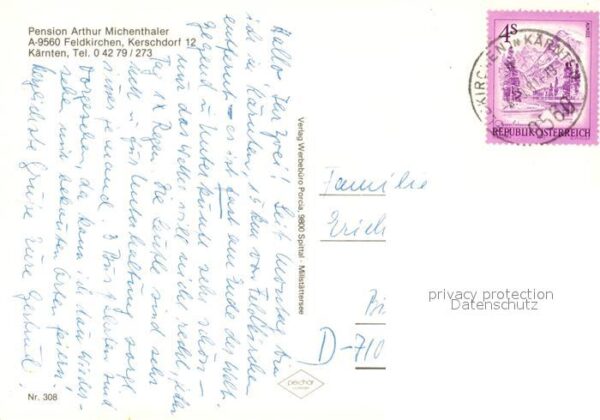 Pension Arthur Michenthaler
A-9560 Feldkirchen, Kerschdorf 12
Kärnten, Tel. 0 42 79 / 273
Hallo, Ihr Zwei! Seit Montag bin
ich in Kärnten, 15 km von Feldkirchen
entfernt – es ist fast am Ende der Welt.
Gegend u. Unterkunft sehr schön –
nur das Wetter will nicht recht, jeden
Tag 1x Regen. Die Leute sind sehr
nett u. für Unterhaltung sorgt
immer jemand. 3 Bus
vorgesehen, da kann ich dann Wieder-
sehen mit bekannten Orten feiern!
Herzlichste Grüße Eure Gertrud.
Nr. 308
Verlag Werbebüro Porcia, 9800 Spittal - Millstättersee
4S
REPUBLIK ÖSTERREICH
KIRCHEN IN KÄRNTEN
9560
Familie
Erich
D-710
privacy protection
Datenschutz